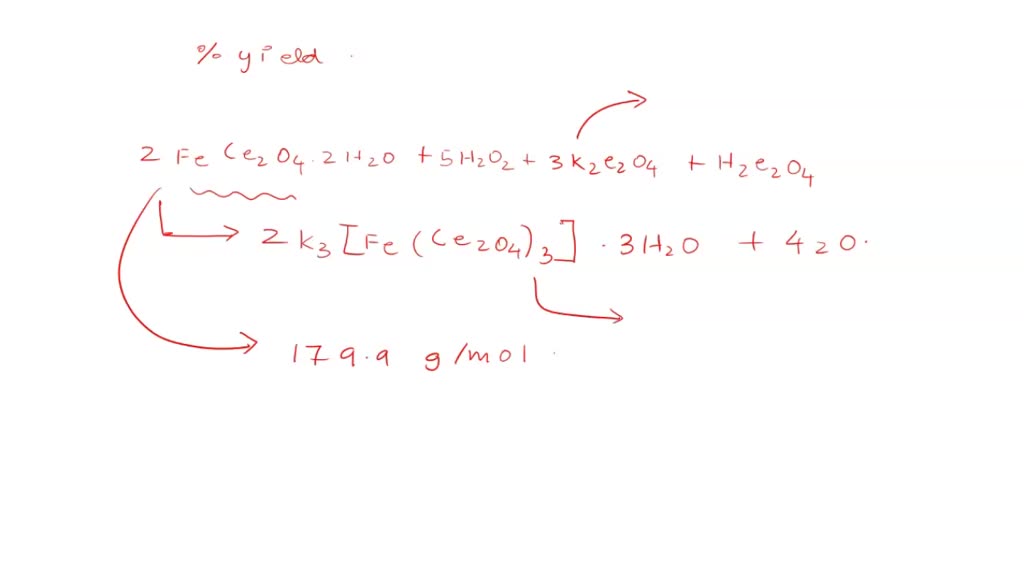 % yield
2 Fe Ce2O4.2H2O + 5H2O2 + 3K2e2O4 + H2e2O4
2 K3 [Fe(Ce2O4)3] · 3H2O + 42O.
179.9 g/mol